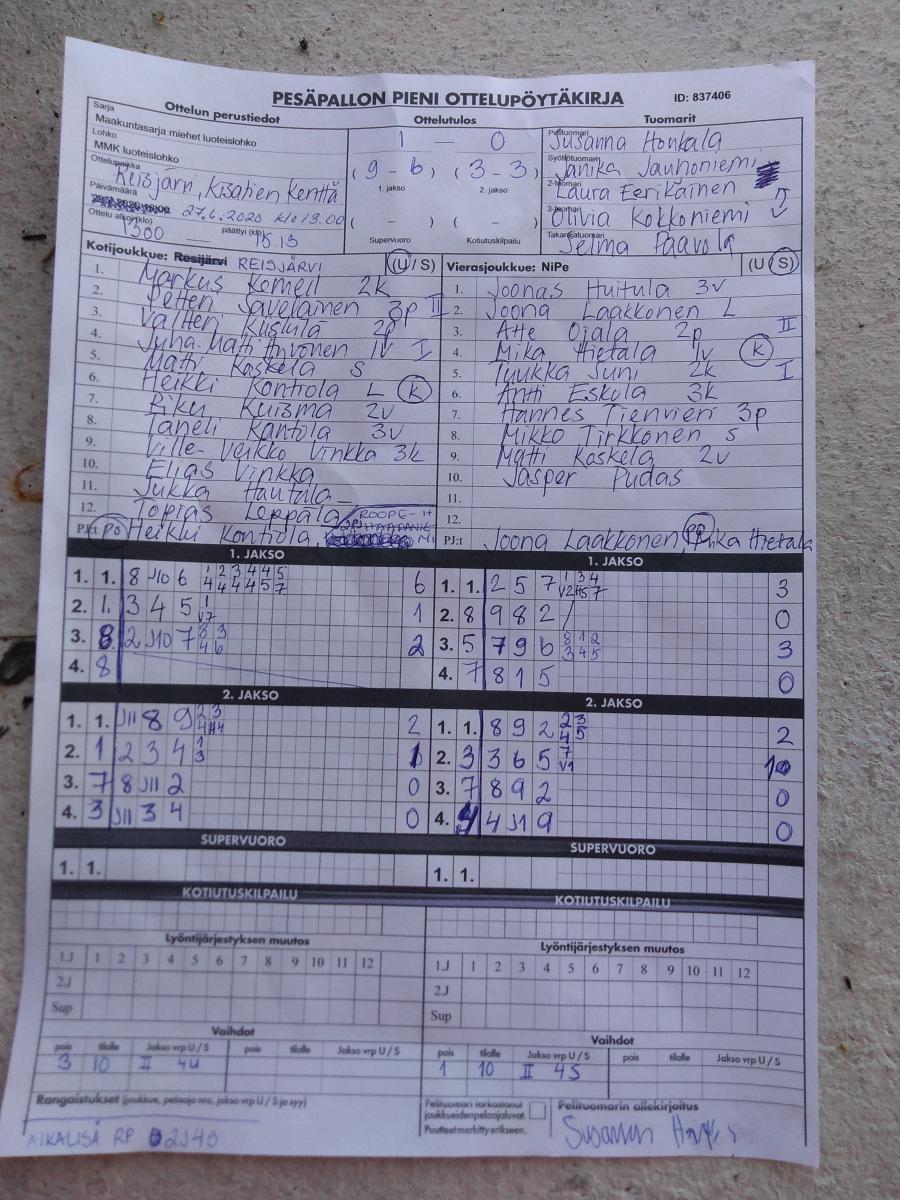 PESÄPALLON PIENI OTTELUPÖYTÄKIRJA ID: 837406
Ottelun perustiedot
Sarja
Maakuntasarja miehet luoteislohko
Lohko
MMK luoteislohko
Ottelupaikka
Reisjärvi, Kisatien Kenttä
Päivämäärä
27.6.2020 klo 13.00
Ottelu alkoi (klo) päättyi (klo)
1300 — 15.15
Ottelutulos
1 — 0
(9 - 6) (3 - 3)
1. jakso 2. jakso
( - ) ( - )
Supervuoro Kotiutuskilpailu
Tuomarit
Pelituomari
Susanna Honkala
Syöttötuomari
Janika Jauhoniemi
2-tuomari
Laura Eerikäinen
3-tuomari
Olivia Kokkoniemi
Takarajatuomari
Jelma Paavola
Kotijoukkue: Resijärvi REISJÄRVI (U / S)
1. Markus Komeil 2k
2. Petteri Savelainen 3p II
3. Valtteri Kustula 2p
4. Juha-Matti Hyvönen 1v I
5. Matti Kaskela S
6. Heikki Kontiola L K
7. Riku Kuisma 2v
8. Taneli Kantola 3v
9. Ville-Veikko Vinkka 3k
10. Elias Vinkka
11. Jukka Hautala
12. Topias Leppälä
PJ:t PO Heikki Kontiola,
Vierasjoukkue: NiPe (U / S)
1. Joonas Huitula 3v
2. Joona Laakkonen L
3. Atte Ojala 2p II
4. Mika Hietala 1v K
5. Tuukka Juni 2k I
6. Antti Eskola 3k
7. Hannes Tienvieri 3p
8. Mikko Tirkkonen S
9. Matti Kaskela 2v
10. Jasper Pudas
11.
12.
PJ:t Joona Laakkonen, Mika Hietala
1. JAKSO
1. 1. 8 J10 6 1 2 3 4 4 5 6
4 4 4 4 5 7
2. 1. 3 4 5 1 1
V7
3. 8 2 J10 7 3 3 2
4 6
4. 8
2. JAKSO
1. 1. J11 8 9 2 3 2
4 H4
2. 1 2 3 4 1 1
3
3. 7 8 J11 2 0
4. 3 J11 3 4 0
SUPERVUORO
1. 1.
KOTIUTUSKILPAILU
1. JAKSO
1. 1. 2 5 7 1 3 4 3
V2 H5 7
2. 8 9 8 2 / 0
3. 5 7 9 6 8 1 2 3
3 4 5
4. 7 8 1 5 0
2. JAKSO
1. 1. 8 9 2 2 3 2
4 5
2. 3 3 6 5 7 1
V1
3. 7 8 9 2 0
4. 4 4 J1 9 0
SUPERVUORO
1. 1.
KOTIUTUSKILPAILU
Lyöntijärjestyksen muutos
1.J 1 2 3 4 5 6 7 8 9 10 11 12
2.J
Sup
Vaihdot
pois tilalle Jakso vrp U / S pois tilalle Jakso vrp U / S
3 10 II 4U
Lyöntijärjestyksen muutos
1.J 1 2 3 4 5 6 7 8 9 10 11 12
2.J
Sup
Vaihdot
pois tilalle Jakso vrp U / S pois tilalle Jakso vrp U / S
1 10 II 4S
Rangaistukset (joukkue, pelaaja nro, jakso vrp U / S ja syy)
AIKALISÄ RP 2J4Ö
Pelituomari tarkastanut
joukkueiden peloajaluvat.
Puutteet merkitty erikseen.
Pelituomarin allekirjoitus